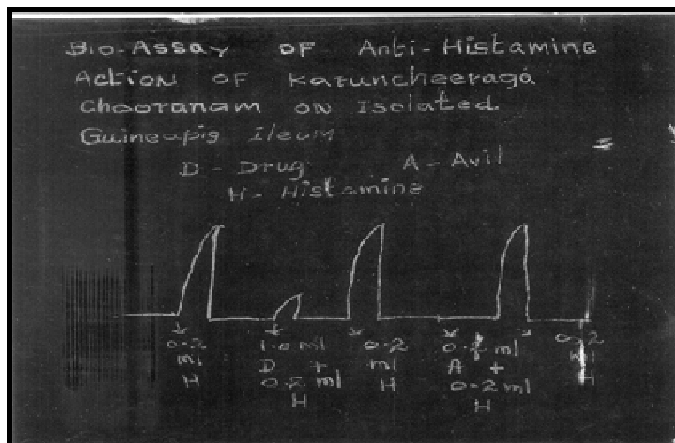 Bio-Assay OF Anti-Histamine
Action OF Karuncheeraga
Chooranam on Isolated
Guineapig Ileum
D - Drug A - Avil
H - Histamine
0.2 ml H
1.0 ml D + 0.2 ml H
0.2 ml H
ml A + 0.2 ml H
0.2 ml H